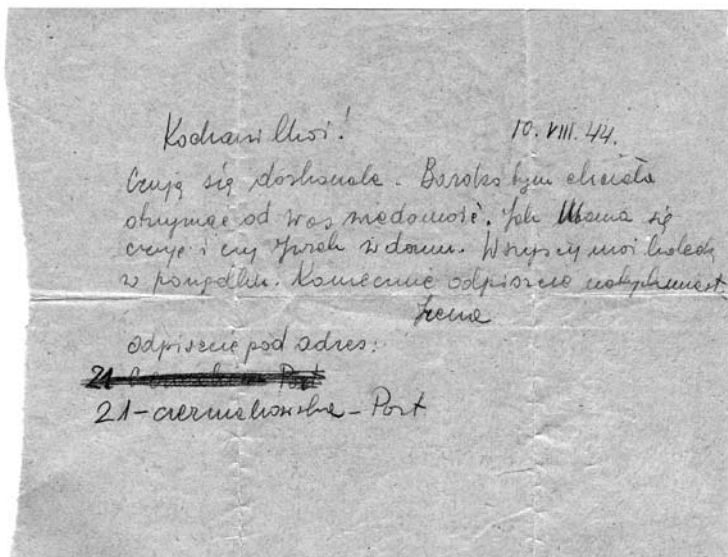 Kochani Moi! 10. VIII. 44.
Czuję się doskonale. Bardzo bym chciała
otrzymać od was wiadomość. Jak Mama się
czuje i czy Jurek w domu. Wszyscy moi koledzy
w porządku. Koniecznie odpiszcie natychmiast.
Irena
odpiszcie pod adres:
21
21-czerniakowska-Port